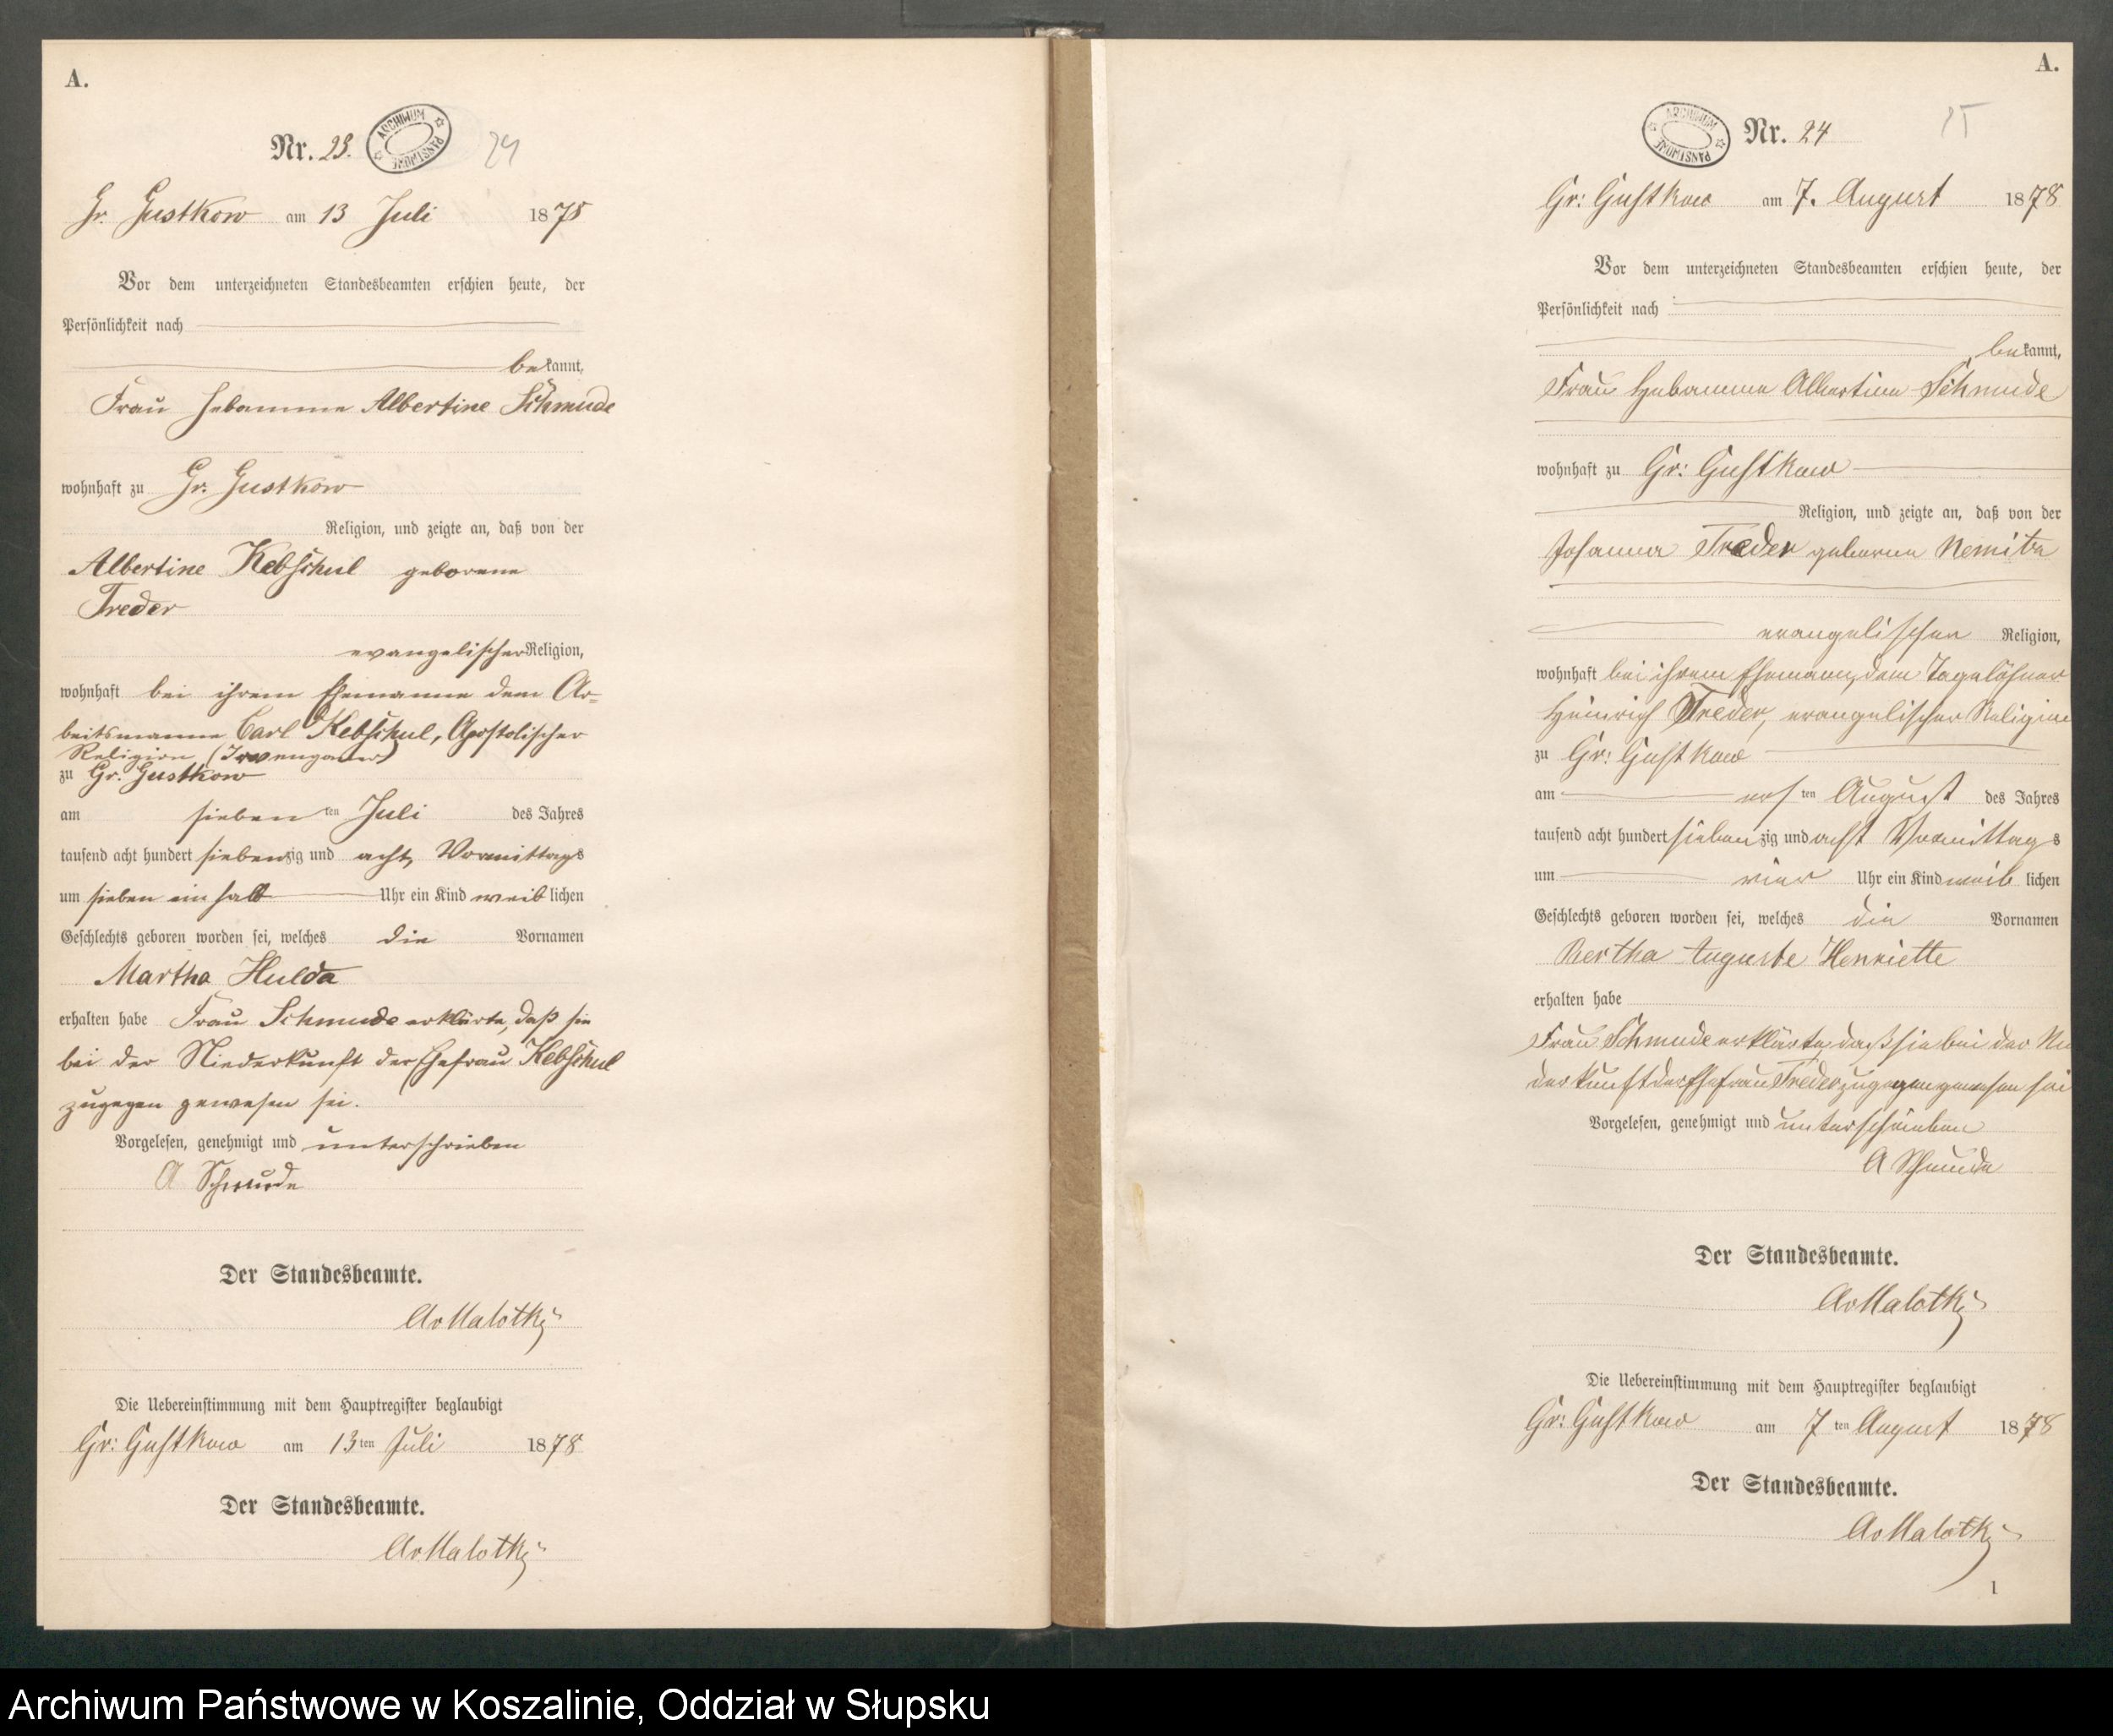 A.
Nr. 23.
ARCHIWUM PAŃSTWOWE
24
Gr. Gustkow am 13 Juli 1878
Vor dem unterzeichneten Standesbeamten erschien heute, der
Persönlichkeit nach
bekannt,
Frau Hebamme Albertine Schmude
wohnhaft zu Gr. Gustkow
Religion, und zeigte an, daß von der
Albertine Kebschul geborene
Treder
evangelischer Religion,
wohnhaft bei ihrem Ehemanne dem Ar-
beitsmanne Carl Kebschul, Apostolischer
Religion
zu Gr. Gustkow
am sieben ten Juli des Jahres
tausend acht hundert siebenzig und acht Vormittags
um sieben ein halb Uhr ein Kind weiblichen
Geschlechts geboren worden sei, welches die Vornamen
Martha Hulda
erhalten habe Frau Schmude erklärte, daß sie
bei der Niederkunft der Ehefrau Kebschul
zugegen gewesen sei.
Vorgelesen, genehmigt und unterschrieben
A Schmude
Der Standesbeamte.
AvMalotki
Die Uebereinstimmung mit dem Hauptregister beglaubigt
Gr: Gustkow am 13ten Juli 1878
Der Standesbeamte.
AvMalotki
A.
ARCHIWUM PAŃSTWOWE
Nr. 24
25
Gr: Gustkow am 7. August 1878
Vor dem unterzeichneten Standesbeamten erschien heute, der
Persönlichkeit nach
bekannt,
Frau Hebamme Albertine Schmude
wohnhaft zu Gr: Gustkow
Religion, und zeigte an, daß von der
Johanna Treder geborne Nemitz
evangelischer Religion,
wohnhaft bei ihrem Ehemann, dem Tagelöhner
Heinrich Treder, evangelischer Religion
zu Gr: Gustkow
am ersten August des Jahres
tausend acht hundert siebenzig und acht Vormittags
um vier Uhr ein Kind weiblichen
Geschlechts geboren worden sei, welches die Vornamen
Bertha Auguste Henriette
erhalten habe
Frau Schmude erklärte, daß sie bei der Nie
derkunft der Ehefrau Treder zugegen gewesen sei
Vorgelesen, genehmigt und unterschrieben
A Schmude
Der Standesbeamte.
AvMalotki
Die Uebereinstimmung mit dem Hauptregister beglaubigt
Gr: Gustkow am 7ten August 1878
Der Standesbeamte.
AvMalotki
1
Archiwum Państwowe w Koszalinie, Oddział w Słupsku